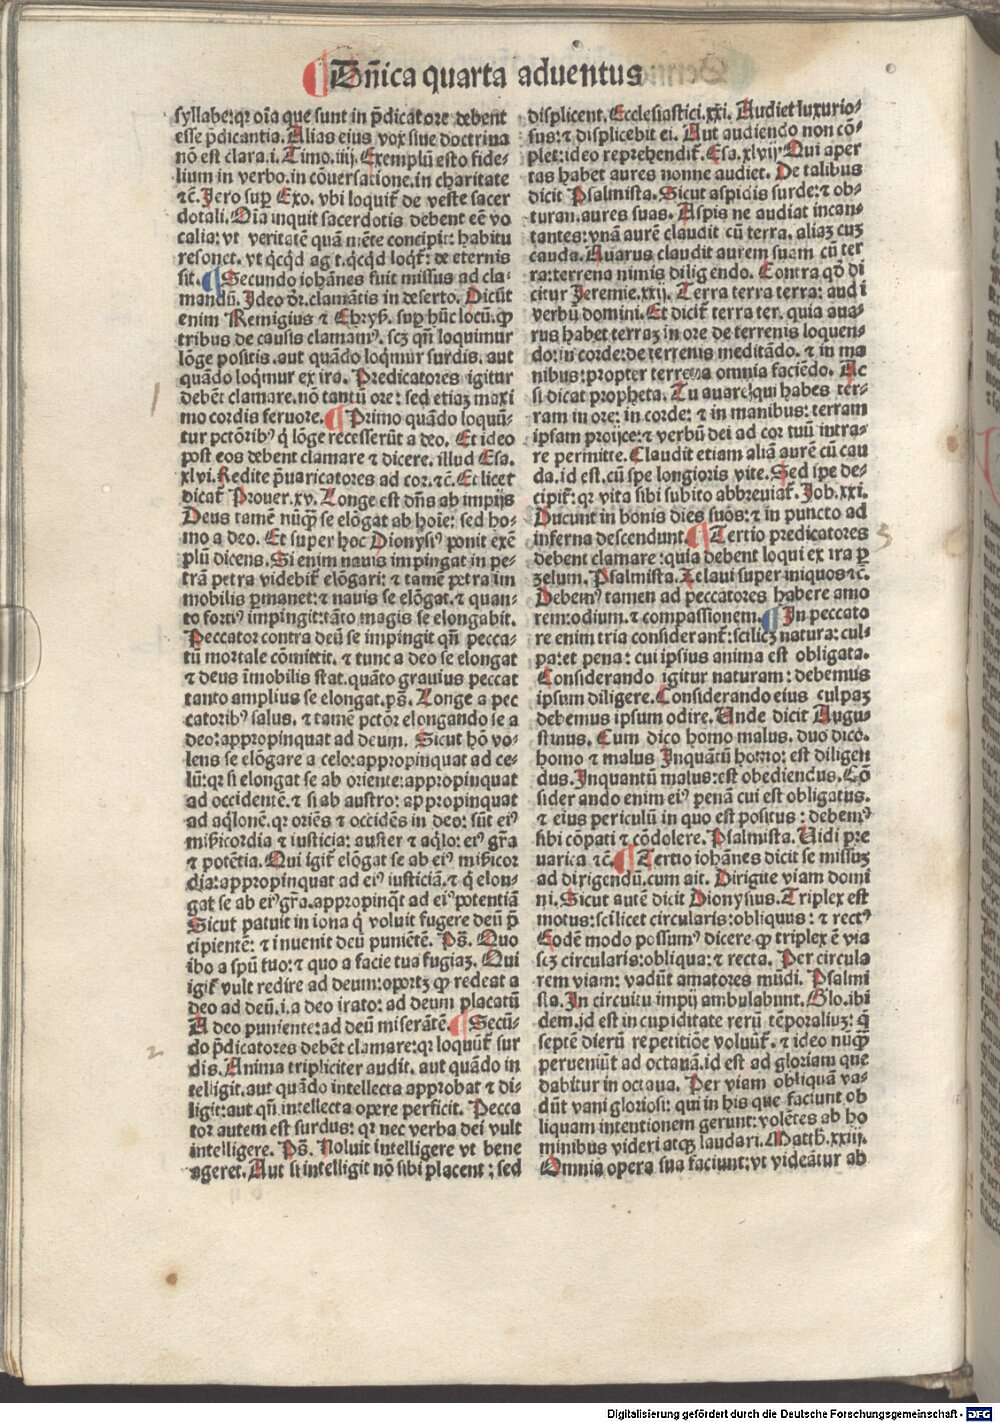 ¶ Dñica quarta aduentus
syllabe:qr oīa que sunt in p̄dicatore debent
esse p̄dicantia. Alias eius vox siue doctrina
nō est clara.i. Timo.iiij. Exemplū esto fide-
lium in verbo.in cōuersatione.in charitate
⁊c̄. Jero sup Exo. vbi loquit᷑ de veste sacer
dotali. Oīa inquit sacerdotis debent eē vo
calia: vt veritatē quā mēte concipit: habitu
resonet. vt qcqd agit.qcqd loqt᷑: de eternis
sit. ¶ Secundo iohānes fuit missus ad cla-
mandū. Ideo dr̄.clamātis in deserto. Dicūt
enim Remigius ⁊ Chryß. sup hūc locū.ꝙ
tribus de causis clamamꝰ. scꝫ qn̄ loquimur
lōge positis.aut quādo loqmur surdis. aut
quādo loqmur ex ira. Predicatores igitur
debēt clamare.nō tantū ore: sed etiaꝫ maxi
mo cordis feruore. ¶ Primo quādo loquū-
tur pctōribꝰ q̄ lōge recesserūt a deo. Et ideo
post eos debent clamare ⁊ dicere. illud Esa.
xlvi. Redite p̄uaricatores ad cor.⁊c̄. Et licet
dicat᷑ Prouer.xv. Longe est dn̄s ab impijs
Deus tamē nūqꝫ se elōgat ab hoīe: sed ho-
mo a deo. Et super hoc Dionysiꝰ ponit exē
plū dicens. Si enim nauis impingat in pe-
trā petra videbit᷑ elōgari: ⁊ tamē petra im
mobilis ꝑmanet:⁊ nauis se elōgat.⁊ quan-
to fortiꝰ impingit:tāto magis se elongabit.
Peccator contra deū se impingit qn̄ pecca-
tū mortale cōmittit. ⁊ tunc a deo se elongat
⁊ deus īmobilis stat.quāto grauius peccat
tanto amplius se elongat.ps̄. Longe a pec
catoribꝰ salus. ⁊ tamē pctōr elongando se a
deo:appropinquat ad deum. Sicut hō vo-
lens se elōgare a celo:appropinquat ad ce-
lū:qr si elongat se ab oriente:appropinquat
ad occidentē.⁊ si ab austro: appropinquat
ad aqlonē.qr oriēs ⁊ occidēs in deo: sūt eiꝰ
misicordia ⁊ iusticia: auster ⁊ aqlo: eiꝰ gr̄a
⁊ potētia. Qui igit᷑ elōgat se ab eiꝰ misicor
dia:appropinquat ad eiꝰ iusticiā.⁊ q̄ elon-
gat se ab eiꝰ gr̄a.appropinqt ad eiꝰ potentiā
Sicut patuit in iona q̄ voluit fugere deū p̄
cipientē: ⁊ inuenit deū puniētē. Ps̄. Quo
ibo a spū tuo:⁊ quo a facie tua fugiaꝫ. Qui
igit᷑ vult redire ad deum:oportꝫ ꝙ redeat a
deo ad deū.i.a deo irato: ad deum placatū
A deo puniente:ad deū miserātē. ¶ Secū-
do p̄dicatores debēt clamare:qr loquūt᷑ sur
dis. Anima tripliciter audit. aut quādo in
telligit.aut quādo intellecta approbat ⁊ di-
ligit:aut qn̄ intellecta opere perficit. Pecca
tor autem est surdus: qr nec verba dei vult
intelligere. Ps̄. Noluit intelligere vt bene
ageret. Aut si intelligit nō sibi placent: sed
displicent. Ecclesiastici.xxi. Audiet luxurio-
sus:⁊ displicebit ei. Aut audiendo non cō-
plet:ideo reprehendit᷑. Esa.xlvij. Qui aper
tas habet aures nonne audiet. De talibus
dicit Psalmista. Sicut aspidis surde:⁊ ob-
turan.aures suas. Aspis ne audiat incan-
tantes:vnā aurē claudit cū terra. aliaꝫ cuꝫ
cauda. Auarus claudit aurem suam cū ter
ra:terrena nimis diligendo. Contra qō di
citur Jeremie.xxij. Terra terra terra: audi
verbū domini. Et dicit᷑ terra ter. quia aua-
rus habet terraꝫ in ore de terrenis loquen-
do:in corde:de terrenis meditādo. ⁊ in ma
nibus:propter terrena omnia faciēdo. Ac
si dicat propheta. Tu auare:qui habes ter-
ram in ore: in corde: ⁊ in manibus: terram
ipsam proijce:⁊ verbū dei ad cor tuū intra-
re permitte. Claudit etiam aliā aurē cū cau
da.id est.cū spe longioris vite. Sed ipe de-
cipit᷑: qr vita sibi subito abbreuiat᷑. Job.xxi.
Ducunt in bonis dies suos:⁊ in puncto ad
inferna descendunt. ¶ Tertio predicatores
debent clamare :quia debent loqui ex ira ꝑ
zelum. Psalmista. Zelaui super iniquos ⁊c̄.
Debemꝰ tamen ad peccatores habere amo
rem:odium.⁊ compassionem. ¶ In peccato
re enim tria considerant᷑:scilicꝫ natura: cul-
pa:et pena: cui ipsius anima est obligata.
Considerando igitur naturam: debemus
ipsum diligere. Considerando eius culpaꝫ
debemus ipsum odire. Unde dicit Augu-
stinus. Cum dico homo malus. duo dico.
homo ⁊ malus Inquātū homo: est diligen
dus. Inquantū malus:est obediendus. Cō
siderando enim eiꝰ penā cui est obligatus.
⁊ eius periculū in quo est positus : debemꝰ
sibi cōpati ⁊ cōdolere. Psalmista. Uidi pre
uarica ⁊c̄. ¶ Tertio iohānes dicit se missuꝫ
ad dirigendū.cum ait. Dirigite viam domi
ni. Sicut autē dicit Dionysius. Triplex est
motus:scilicet circularis:obliquus : ⁊ rectꝰ
Eodē modo possumꝰ dicere ꝙ triplex ē via
scꝫ circularis:obliqua:⁊ recta. Per circula
rem viam: vadūt amatores mūdi. Psalmi
sta. In circuitu impij ambulabunt. Glo.ibi
dem.id est in cupiditate rerū tēporaliuꝫ: q̄
septē dierū repetitiōe voluūt᷑. ⁊ ideo nūqꝫ
perueniūt ad octauā.id est ad gloriam que
dabitur in octaua. Per viam obliquā va-
dūt vani gloriosi: qui in his que faciunt ob
liquam intentionem gerunt: volētes ab ho
minibus videri atqꝫ laudari. Matth̄.xxiij.
Omnia opera sua faciunt:vt videātur ab
1
2
3
Digitalisierung gefördert durch die Deutsche Forschungsgemeinschaft - DFG